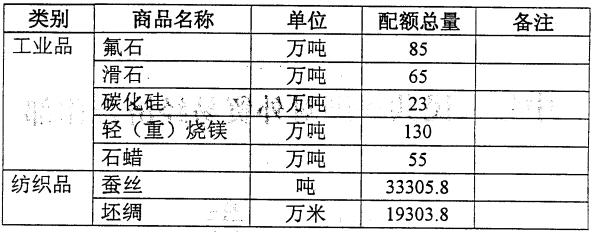 类别 商品名称 单位 配额总量 备注
工业品 氟石 万吨 85
滑石 万吨 65
碳化硅 万吨 23
轻（重）烧镁 万吨 130
石蜡 万吨 55
纺织品 蚕丝 吨 33305.8
坯绸 万米 19303.8